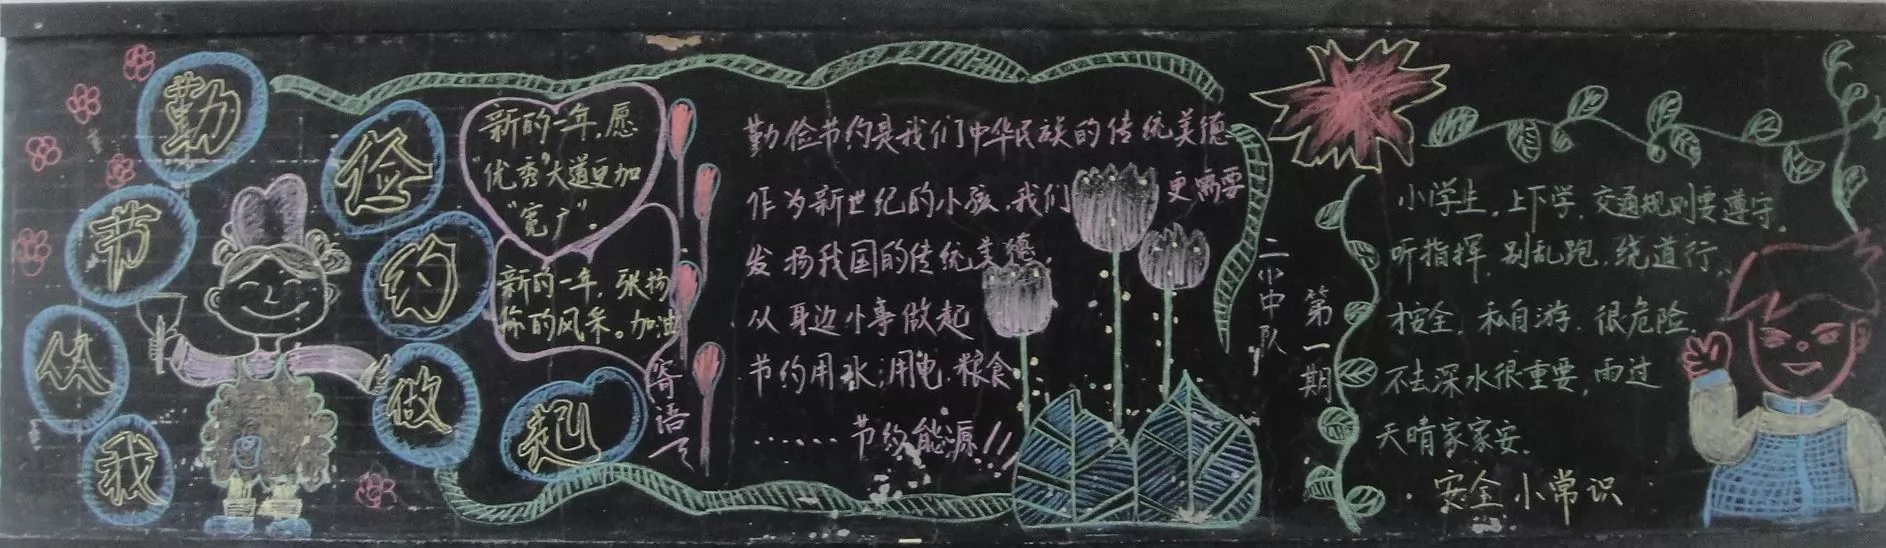 勤俭
节约
从
我
做
起
新的一年,愿
"优秀"大道更加
"宽广"。
新的一年,张扬
你的风采。加油
寄语
勤俭节约是我们中华民族的传统美德
作为新世纪的小孩,我们更需要
发扬我国的传统美德,
从身边小事做起
节约用水,用电,粮食
……节约能源!!
二小中队
第一期
小学生,上下学,交通规则要遵守,
听指挥,别乱跑,绕道行,
才安全,私自游,很危险,
不去深水很重要,雨过
天晴家家安.
安全小常识